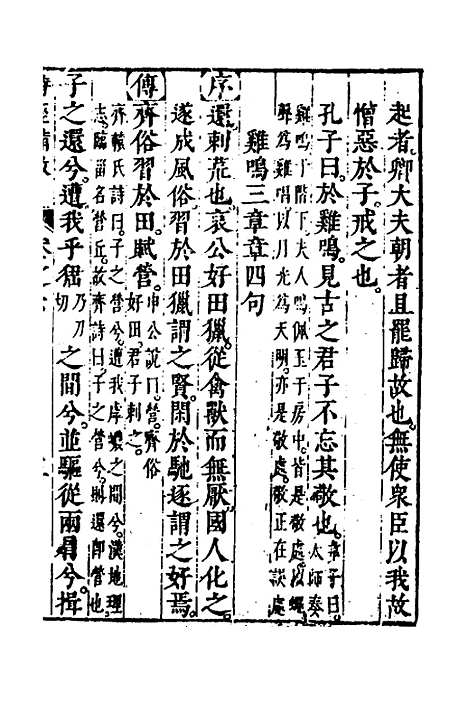 起者。卿大夫朝者且罷歸故也。無使衆臣以我故
憎惡於子。戒之也。
孔子曰。於雞鳴。見古之君子不忘其敬也。章子曰。太師奏
雞鳴于階下。夫人鳴佩玉于房中。皆是敬處。以蠅
聲爲雞鳴。以月光爲天明。亦是敬處。敬正在誤處
雞鳴三章章四句
序還刺荒也。哀公好田獵。從禽獸而無厭。國人化之。
遂成風俗。習於田獵謂之賢。閑於馳逐謂之好焉。
傳齊俗習於田。賦營。申公說曰。營。齊俗好田。君子刺之。
齊轅氏詩曰。子之營兮。遭我虖嶩之間兮。漢地理
志。臨甾名營丘。故齊詩曰。子之營兮。則還即營也
子之還兮。遭我乎峱乃刀切之間兮。並驅從兩肩兮。揖